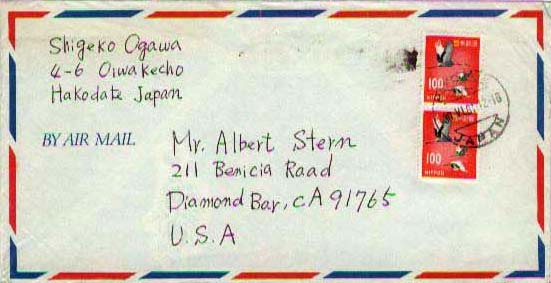 Shigeko Ogawa
4-6 Oiwakecho
Hakodate Japan
BY AIR MAIL
Mr. Albert Stern
211 Benicia Raad
Diamond Bar, CA 91765
U.S.A
日本郵便
100
NIPPON
100
NIPPON
JAPAN